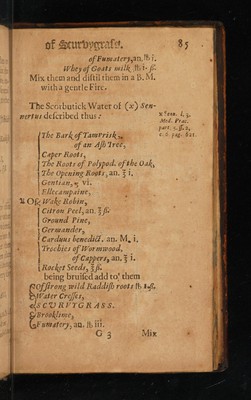 of Scurvygrass. 85
of Fumatery, an. ℔ i.
Whey of Goats milk ℔ i. ß.
Mix them and distil them in a B. M.
with a gentle Fire.
The Scorbutick Water of (x) Sen-
nertus described thus:
x Senn. l. 3.
Med. Prac.
part. 5. ß. 2.
c. 6. pag. 821.
The Bark of Tamrisk
of an Ash Tree,
Caper Roots,
The Roots of Polypod. of the Oak,
The Opening Roots, an. ℥ i.
Gentian, vi.
Ellecampaine,
Of Wake Robin,
Citron Peel, an. ℥ ß.
Ground Pine,
Germander,
Carduus benedict. an. M. i.
Trochies of Wormwood,
of Cappers, an. ℥ i.
Rocket Seeds, ℥ ß.
being bruised add to' them
Of strong wild Raddish roots ℔ i. ß.
Water Cresses,
SCURVYGRASS.
Brooklime,
Fumatery, an. ℔ iii.
G 3 Mix